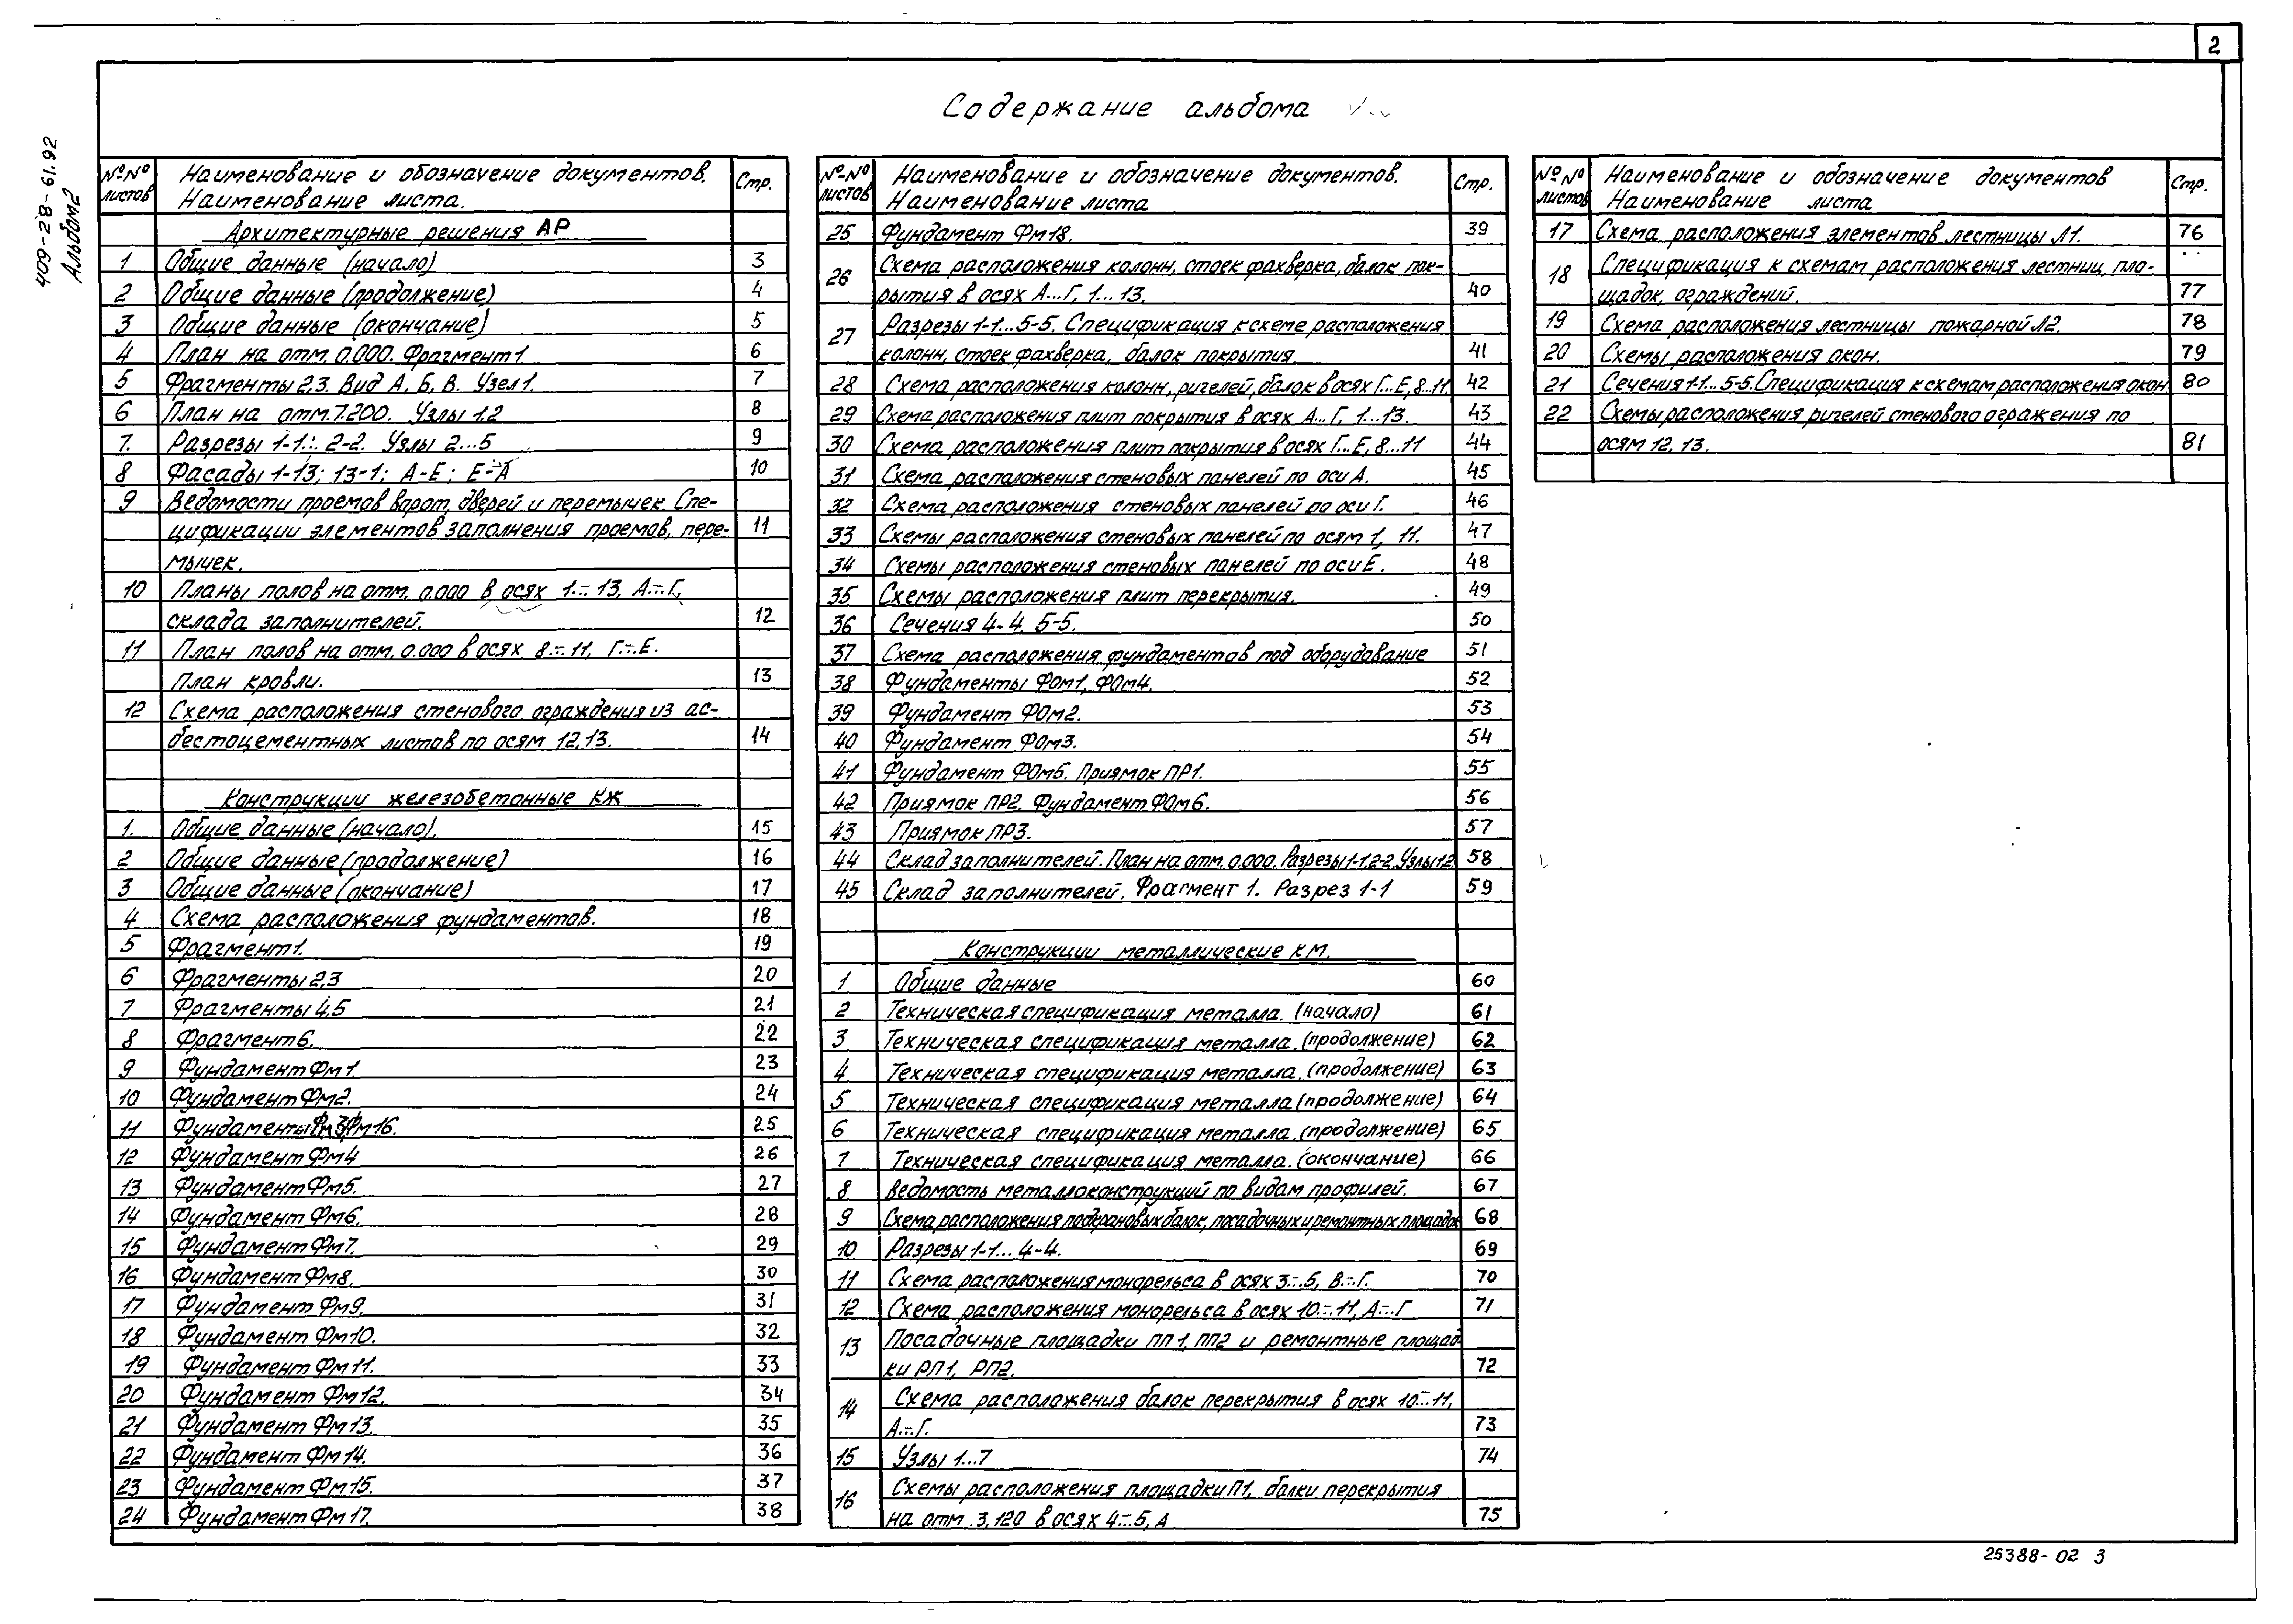 2
409-28-61.92
Альбом2
Содержание альбома
№№ листов
Наименование и обозначение документов. Наименование листа.
Стр.
Архитектурные решения АР
1 Общие данные (начало) 3
2 Общие данные (продолжение) 4
3 Общие данные (окончание) 5
4 План на отм. 0.000. Фрагмент 1 6
5 Фрагменты 2,3. Вид А, Б, В. Узел 1. 7
6 План на отм. 7.200. Узлы 1.2 8
7. Разрезы 1-1.:. 2-2. Узлы 2...5 9
8 Фасады 1-13; 13-1; А-Е; Е-А 10
9 Ведомости проемов ворот, дверей и перемычек. Спе-
цификации элементов заполнения проемов, пере- 11
мычек.
10 Планы полов на отм. 0.000 в осях 1.-.13, А.-.Г,
склада заполнителей. 12
11 План полов на отм. 0.000 в осях 8.-.11, Г.-.Е.
План кровли. 13
12 Схема расположения стенового ограждения из ас-
бестоцементных листов по осям 12,13. 14
Конструкции железобетонные КЖ
1. Общие данные (начало). 15
2 Общие данные (продолжение) 16
3 Общие данные (окончание) 17
4 Схема расположения фундаментов. 18
5 Фрагмент 1. 19
6 Фрагменты 2,3 20
7 Фрагменты 4,5 21
8 Фрагмент 6. 22
9 Фундамент Фм1. 23
10 Фундамент Фм2. 24
11 Фундаменты Фм3, Фм16. 25
12 Фундамент Фм4 26
13 Фундамент Фм5. 27
14 Фундамент Фм6. 28
15 Фундамент Фм7. 29
16 Фундамент Фм8. 30
17 Фундамент Фм9. 31
18 Фундамент Фм10. 32
19 Фундамент Фм11. 33
20 Фундамент Фм12. 34
21 Фундамент Фм13. 35
22 Фундамент Фм14. 36
23 Фундамент Фм15. 37
24 Фундамент Фм17. 38
№№ листов
Наименование и обозначение документов. Наименование листа
Стр.
25 Фундамент Фм18. 39
26 Схема расположения колонн, стоек фахверка, балок пок-
рытия в осях А...Г, 1...13. 40
27 Разрезы 1-1...5-5. Спецификация к схеме расположения
колонн, стоек фахверка, балок покрытия. 41
28 Схема расположения колонн, ригелей, балок в осях Г...Е, 8...11. 42
29 Схема расположения плит покрытия в осях А...Г, 1...13. 43
30 Схема расположения плит покрытия в осях Г...Е, 8...11 44
31 Схема расположения стеновых панелей по оси А. 45
32 Схема расположения стеновых панелей по оси Г. 46
33 Схемы расположения стеновых панелей по осям 1, 11. 47
34 Схемы расположения стеновых панелей по оси Е. 48
35 Схемы расположения плит перекрытия. 49
36 Сечения 4-4, 5-5. 50
37 Схема расположения фундаментов под оборудование 51
38 Фундаменты ФОм1, ФОм4. 52
39 Фундамент ФОм2. 53
40 Фундамент ФОм3. 54
41 Фундамент ФОм5. Приямок ПР1. 55
42 Приямок ПР2. Фундамент ФОм6. 56
43 Приямок ПР3. 57
44 Склад заполнителей. План на отм. 0.000. Разрезы 1-1,2-2. Узлы 1.2 58
45 Склад заполнителей. Фрагмент 1. Разрез 1-1 59
Конструкции металлические КМ.
1 Общие данные 60
2 Техническая спецификация металла. (начало) 61
3 Техническая спецификация металла. (продолжение) 62
4 Техническая спецификация металла. (продолжение) 63
5 Техническая спецификация металла (продолжение) 64
6 Техническая спецификация металла. (продолжение) 65
7 Техническая спецификация металла. (окончание) 66
8 Ведомость металлоконструкций по видам профилей. 67
9 Схема расположения подкрановых балок, посадочных и ремонтных площадок 68
10 Разрезы 1-1... 4-4. 69
11 Схема расположения монорельса в осях 3.-.5, В.-.Г. 70
12 Схема расположения монорельса в осях 10.-.11, А.-.Г 71
13 Посадочные площадки ПП1, ПП2 и ремонтные площад-
ки РП1, РП2. 72
14 Схема расположения балок перекрытия в осях 10.-.11,
А.-.Г. 73
15 Узлы 1...7 74
16 Схемы расположения площадки П1, балки перекрытия
на отм. 3,120 в осях 4.-.5, А 75
№№ листов
Наименование и обозначение документов Наименование листа
Стр.
17 Схема расположения элементов лестницы Л1. 76
18 Спецификация к схемам расположения лестниц, пло-
щадок, ограждений. 77
19 Схема расположения лестницы пожарной Л2. 78
20 Схемы расположения окон. 79
21 Сечения 1-1...5-5. Спецификация к схемам расположения окон 80
22 Схемы расположения ригелей стенового огражения по
осям 12, 13. 81
25388-02 3